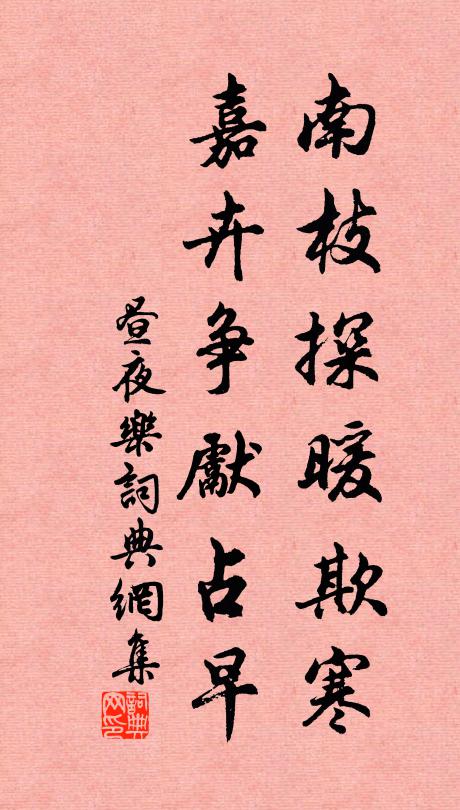 南枝探暖欺寒
嘉卉争獻占早
昼夜樂詞典網集
詞典
网印